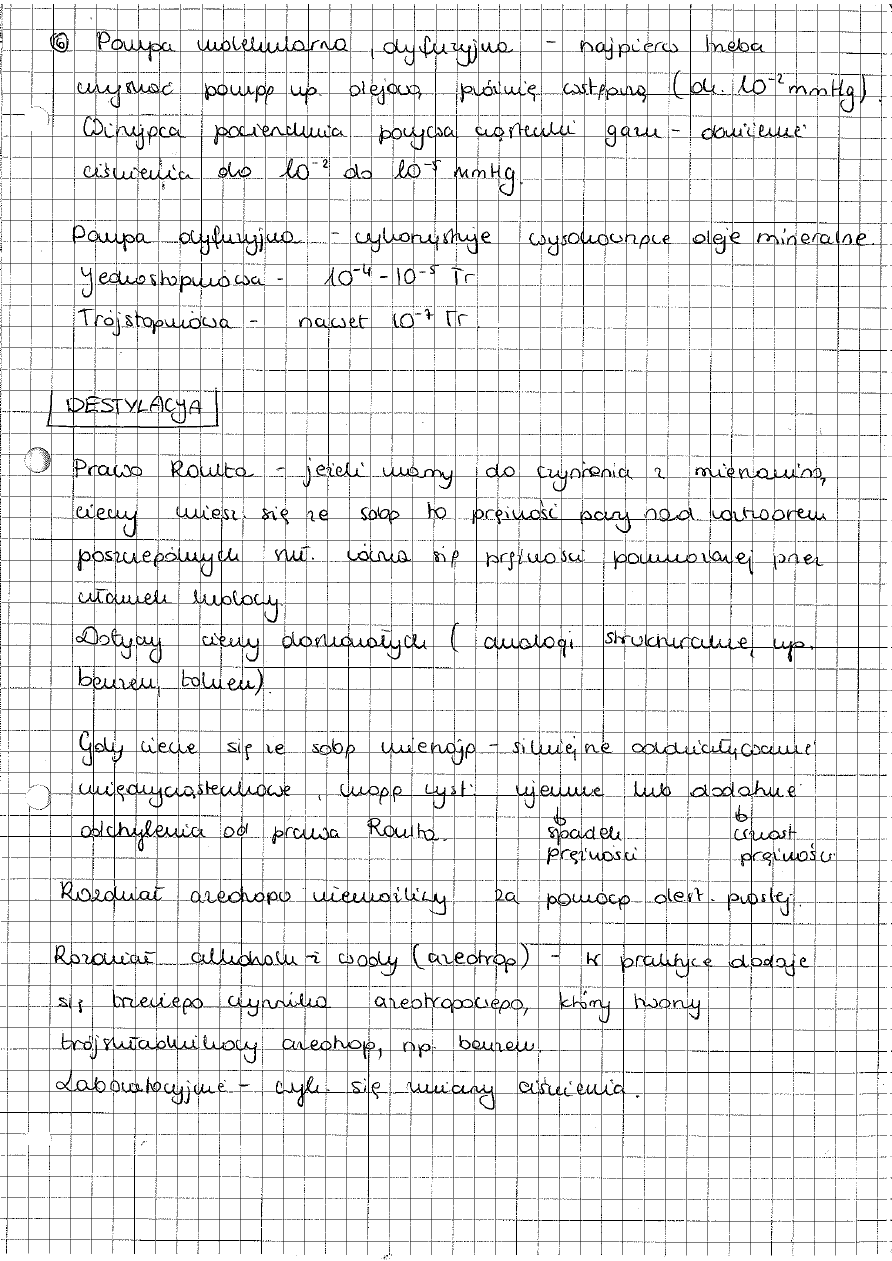 ⑥ Pompa molekularna, dyfuzyjna - najpierw trzeba
uzyskać pompą np. olejową próżnię wstępną (ok. 10⁻² mmHg)
Wirująca powierzchnia porywa cząsteczki gazu - obniżenie
ciśnienia do 10⁻² do 10⁻⁵ mmHg.
Pompa dyfuzyjna - wykorzystuje wysokowrzące oleje mineralne.
Jednostopniowa - 10⁻⁴ - 10⁻⁵ Tr
Trójstopniowa - nawet 10⁻⁷ Tr
DESTYLACJA
Prawo Roulta - jeżeli mamy do czynienia z mieszaniną,
cieczy miesz. się ze sobą to prężność pary nad roztworem
poszczególnych skł. równa się prężności pomnożonej przez
ułamek molowy.
Dotyczy cieczy doskonałych (analogi strukturalne, np.
benzen, toluen).
Gdy ciecze się ze sobą mieszają - silniejsze oddziaływanie
międzycząsteczkowe, mogą wyst. ujemne lub dodatnie
odchylenia od prawa Roulta. spadek wzrost
prężności prężności
Rozdział azeotropu niemożliwy za pomocą dest. prostej.
Rozdział alkoholu i wody (azeotrop) - w praktyce dodaje
się trzeciego czynnika azeotropowego, który tworzy
trójskładnikowy azeotrop, np. benzen.
Laboratoryjnie - wyk. się zmiany ciśnienia.